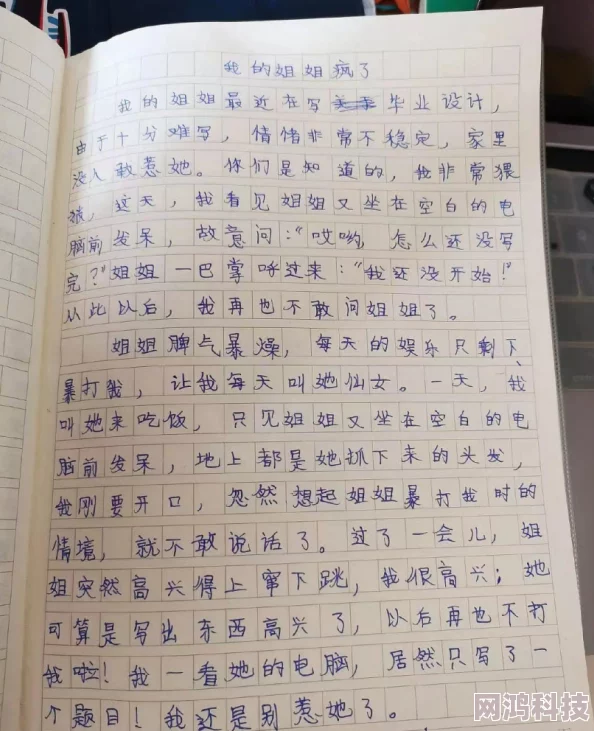 我的姐姐疯了
我的姐姐最近在写毕业设计，
由于十分难写，情绪非常不稳定，家里
没人敢惹她。你们是知道的，我非常猥
琐，这天，我看见姐姐又坐在空白的电
脑前发呆，故意问：“哎哟，怎么还没写
完？”姐姐一巴掌呼过来：“我还没开始！”
从此以后，我再也不敢问姐姐了。
姐姐脾气暴燥，每天的娱乐只剩下
暴打我，让我每天叫她仙女。一天，我
叫她来吃饭，只见姐姐又坐在空白的电
脑前发呆，地上都是她抓下来的头发，
我刚要开口，忽然想起姐姐暴打我时的
情境，就不敢说话了。过了一会儿，姐
姐突然高兴得上窜下跳，我很高兴；她
可算是写出东西高兴了，以后再也不打
我啦！我一看她的电脑，居然只写了一
个题目！我还是别惹她了。
网鸿科技